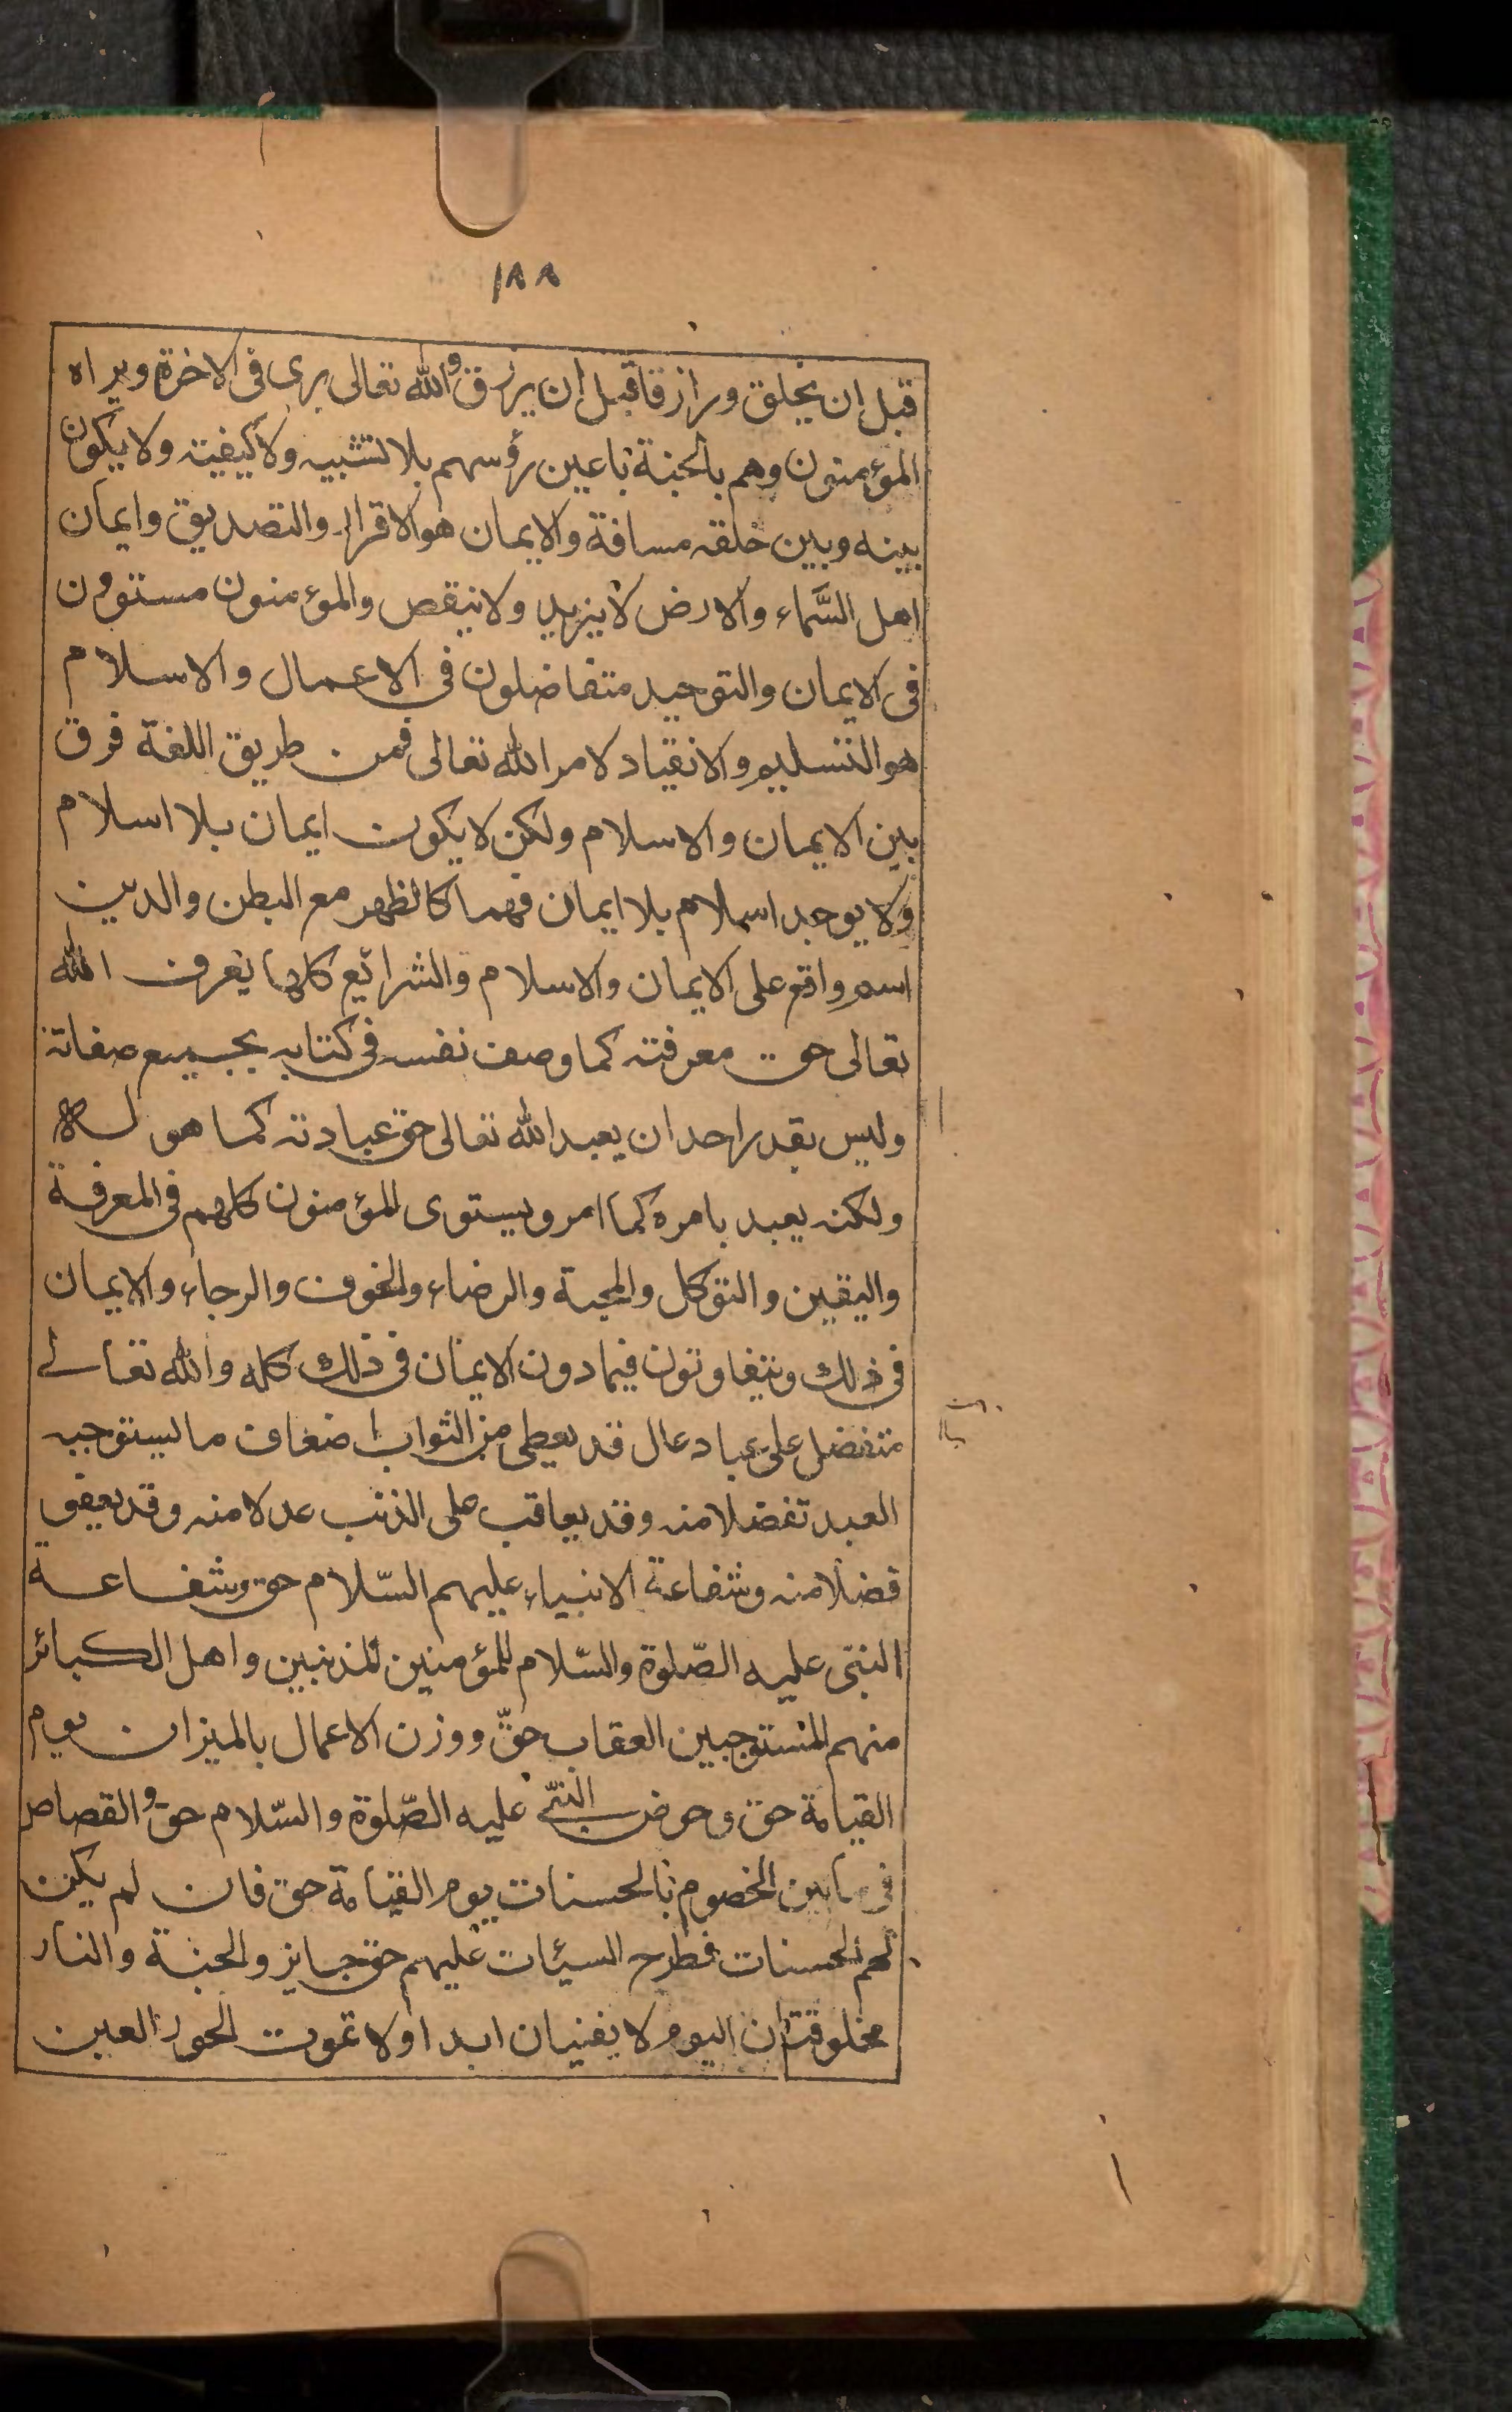 ١٨٨
قبل ان يخلق ورازقا قبل ان يرزق والله تعالى يرى فى الاخرة ويراه
المؤمنون وهم بالجنة باعين رؤسهم بلا تشبيه ولا كيفية ولا يكون
بينه وبين خلقه مسافة والايمان هو الاقرار والتصديق وايمان
اهل السَّماء والارض لا يزيد ولا ينقص والمؤمنون مستوون
فى الايمان والتوحيد متفاضلون فى الاعمال والاسلام
هو التسليم والانقياد لامر الله تعالى فمن طريق اللغة فرق
بين الايمان والاسلام ولكن لا يكون ايمان بلا اسلام
ولا يوجد اسلام بلا ايمان فهما كالظهر مع البطن والدين
اسم واقع على الايمان والاسلام والشرائع كلها يعرف الله
تعالى حق معرفته كما وصف نفسه فى كتابه بجميع صفاته
وليس يقدر احد ان يعبد الله تعالى حق عبادته كما هو له
ولكنه يعبد بامره كما امر ويستوى المؤمنون كلهم فى المعرفة
واليقين والتوكل والمحبة والرضاء والخوف والرجاء والايمان
فى ذلك ويتفاوتون فيما دون الايمان فى ذلك كله والله تعالى
متفضل على عباد عال قد يعطى من الثواب اضعاف ما يستوجبه
العبد تفضلا منه وقد يعاقب على الذنب عدلا منه وقد يعفو
فضلا منه وشفاعة الانبياء عليهم السّلام حق وشفاعة
النبى عليه الصّلوة والسّلام للمؤمنين المذنبين واهل الكبائر
منهم المستوجبين العقاب حقّ ووزن الاعمال بالميزان يوم
القيامة حق وحوض النبىّ عليه الصّلوة والسّلام حق والقصاص
فى ما بين الخصوم بالحسنات يوم القيامة حق فان لم يكن
لهم الحسنات فطرح السيئات عليهم حق جايز والجنة والنار
مخلوقتان اليوم لا يفنيان ابدا ولا تموت الحور العين